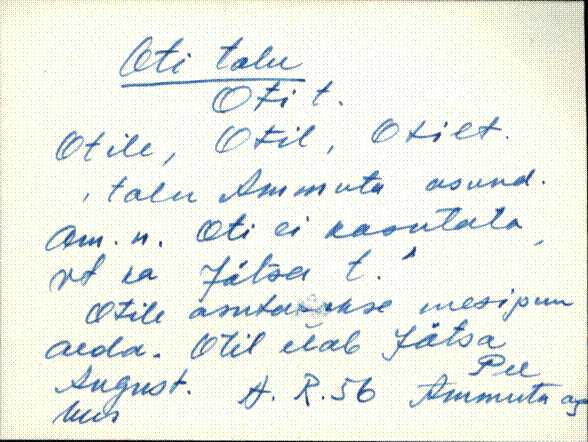 Oti talu
Oti t.
Otile, Otil, Otilt.
, talu Ammuta asund.
Am. n. Oti ei kasutata,
vt ka Jätsa t.
Otile asutatakse mesipuu
aeda. Otil elab Jätsa
August. A. R. 56 Pee
Ammuta as